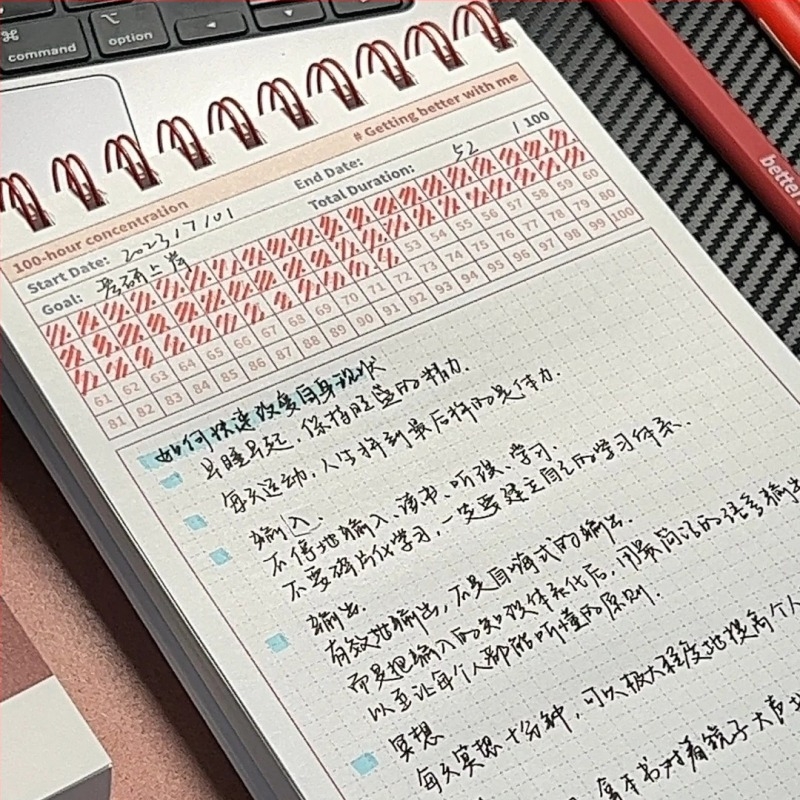 command
option
# Getting better with me
100-hour concentration
Start Date: 2023/7/01
End Date:
Goal: 考研上岸
Total Duration: 52 / 100
53 54 55 56 57 58 59 60
61 62 63 64 65 66 67 68 69 70 71 72 73 74 75 76 77 78 79 80
81 82 83 84 85 86 87 88 89 90 91 92 93 94 95 96 97 98 99 100
如何快速改变自身现状
早睡早起，保持旺盛的精力.
每天运动，人生拼到最后拼的是体力.
输入.
不停地输入，读书、听课、学习.
不要碎片化学习，一定要建立自己的学习体系.
输出.
有效地输出，不是自嗨式的输出.
而是把输入的知识体系化后，用最简洁的语言输出
以至让每个人都能听懂的原则.
冥想
每天冥想十分钟，可以极大程度地提高个人
拿本书对着镜子大声
better